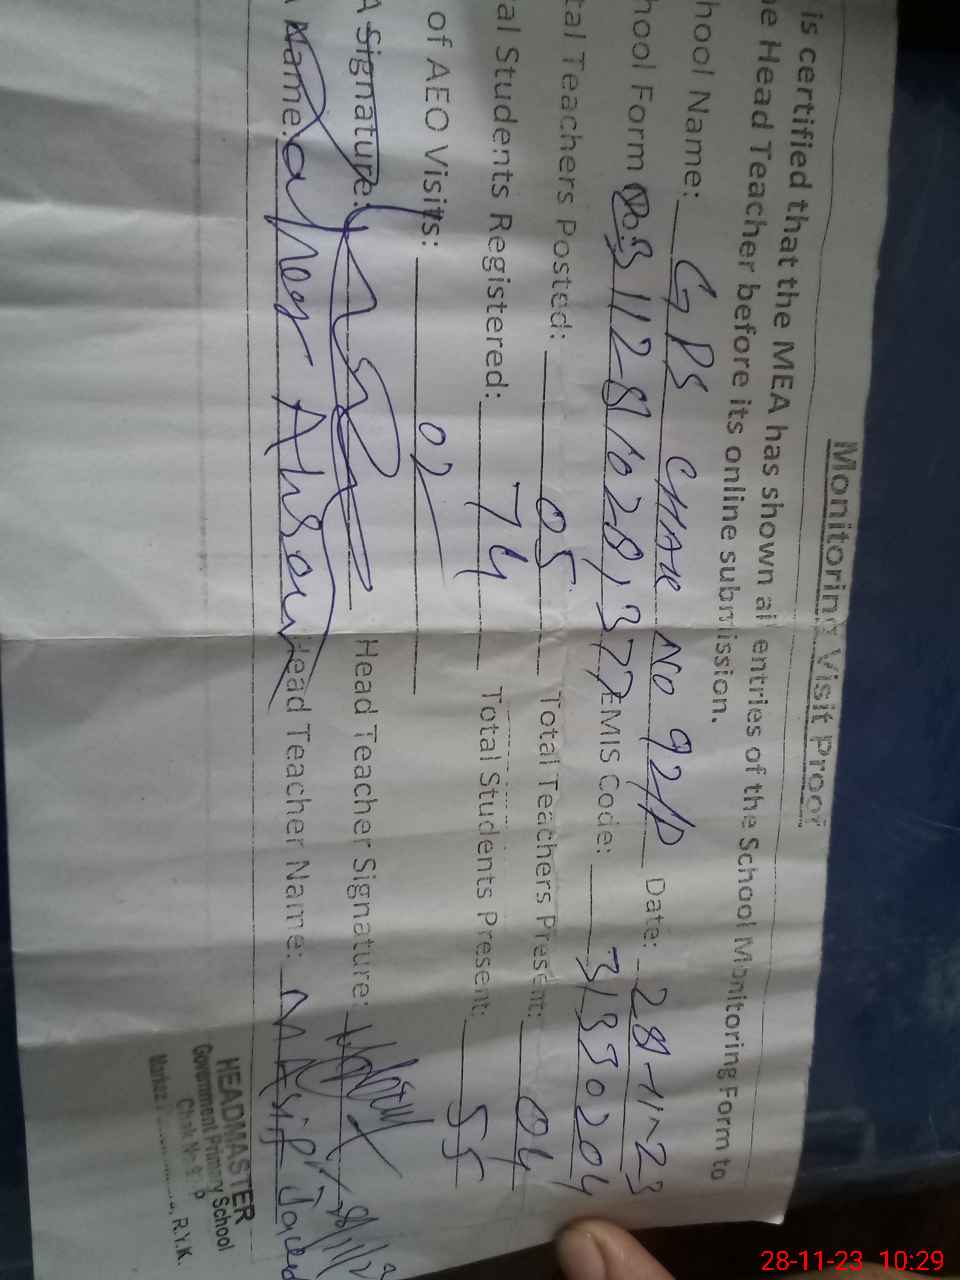 Monitoring Visit Proof
is certified that the MEA has shown all entries of the School Monitoring Form to
e Head Teacher before its online submission.
hool Name: GPS CHAK NO 92/P Date: 28-11-23
hool Form No: EMIS Code: 31330204
tal Teachers Posted: 05 Total Teachers Present: 04
al Students Registered: 74 Total Students Present: 55
of AEO Visits: 02
A Signature: Head Teacher Signature:
Name: Ahsan Head Teacher Name: M Asif Javed
HEADMASTER
Government Primary School
Chak No. P
Markaz R.Y.K.
28-11-23 10:29